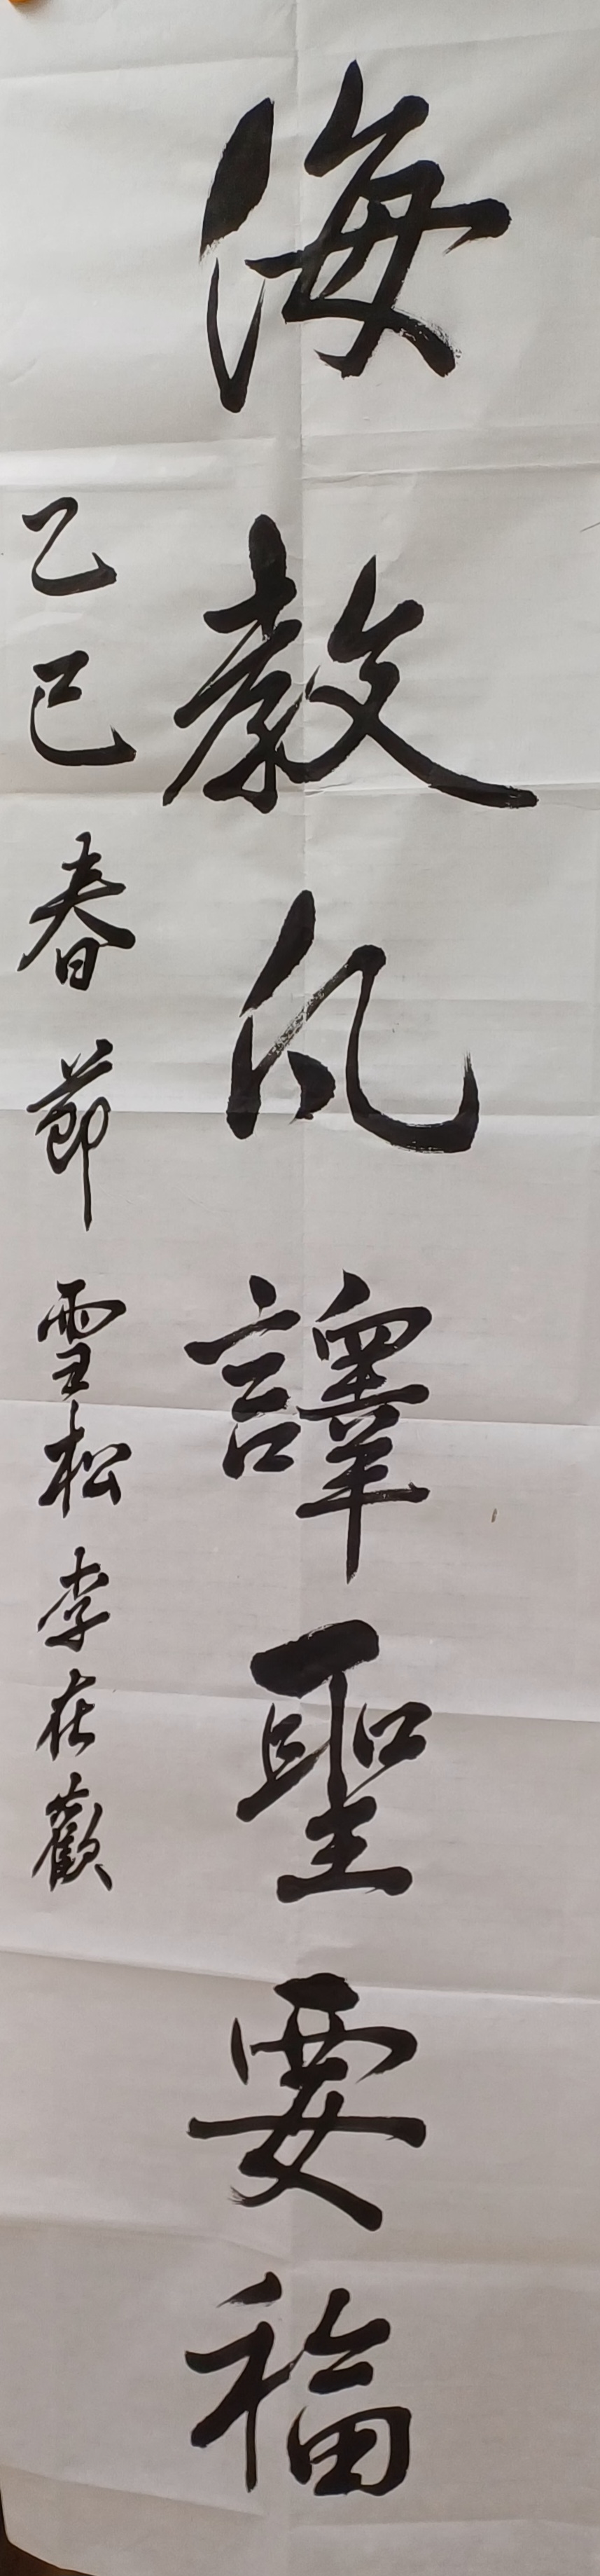 海教譯聖要福
乙巳春節雪松李在歡